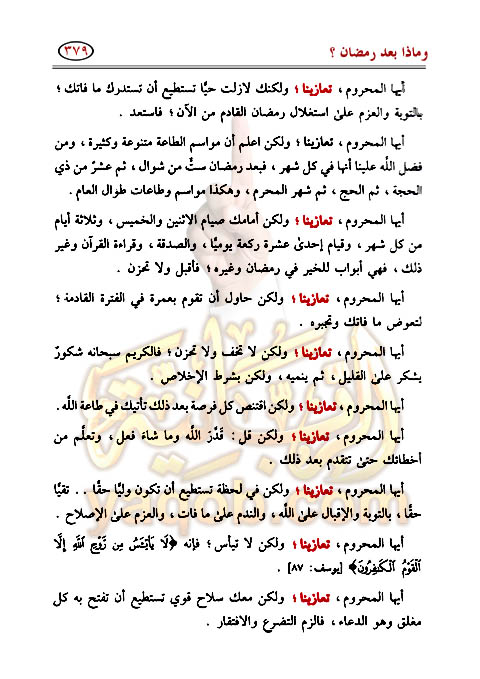 وماذا بعد رمضان ؟
٣٧٩
أيها المحروم ، تعازينا ؛ ولكنك لازلت حيًّا تستطيع أن تستدرك ما فاتك ؛
بالتوبة والعزم علىٰ استغلال رمضان القادم من الآن ؛ فاستعد .
أيها المحروم ، تعازينا ؛ ولكن اعلم أن مواسم الطاعة متنوعة وكثيرة ، ومن
فضل اللَّه علينا أنها في كل شهر ، فبعد رمضان ستٌّ من شوال ، ثم عشرٌ من ذي
الحجة ، ثم الحج ، ثم شهر المحرم ، وهكذا مواسم وطاعات طوال العام .
أيها المحروم ، تعازينا ؛ ولكن أمامك صيام الاثنين والخميس ، وثلاثة أيام
من كل شهر ، وقيام إحدىٰ عشرة ركعة يوميًّا ، والصدقة ، وقراءة القرآن وغير
ذلك ، فهي أبواب للخير في رمضان وغيره ؛ فأقبل ولا تحزن .
أيها المحروم ، تعازينا ؛ ولكن حاول أن تقوم بعمرة في الفترة القادمة ؛
لتعوض ما فاتك وتجبره .
أيها المحروم ، تعازينا ؛ ولكن لا تخف ولا تحزن ؛ فالكريم سبحانه شكورٌ
يشكر علىٰ القليل ، ثم ينميه ، ولكن بشرط الإخلاص .
أيها المحروم ، تعازينا ؛ ولكن اقتنص كل فرصة بعد ذلك تأتيك في طاعة اللَّه.
أيها المحروم ، تعازينا ؛ ولكن قل : قَدَّرَ اللَّه وما شاءَ فعل ، وتعلَّم من
أخطائك حتىٰ تتقدم بعد ذلك .
أيها المحروم ، تعازينا ؛ ولكن في لحظة تستطيع أن تكون وليًّا حقًّا . . تقيًّا
حقًّا ، بالتوبة والإقبال علىٰ اللَّه ، والندم علىٰ ما فات ، والعزم علىٰ الإصلاح .
أيها المحروم ، تعازينا ؛ ولكن لا تيأس ؛ فإنه ﴿لَا يَاْيْـَٔسُ مِن رَّوْحِ ٱللَّهِ إِلَّا
ٱلْقَوْمُ ٱلْكَٰفِرُونَ﴾ [يوسف: ٨٧] .
أيها المحروم ، تعازينا ؛ ولكن معك سلاح قوي تستطيع أن تفتح به كل
مغلق وهو الدعاء ، فالزم التضرع والافتقار .